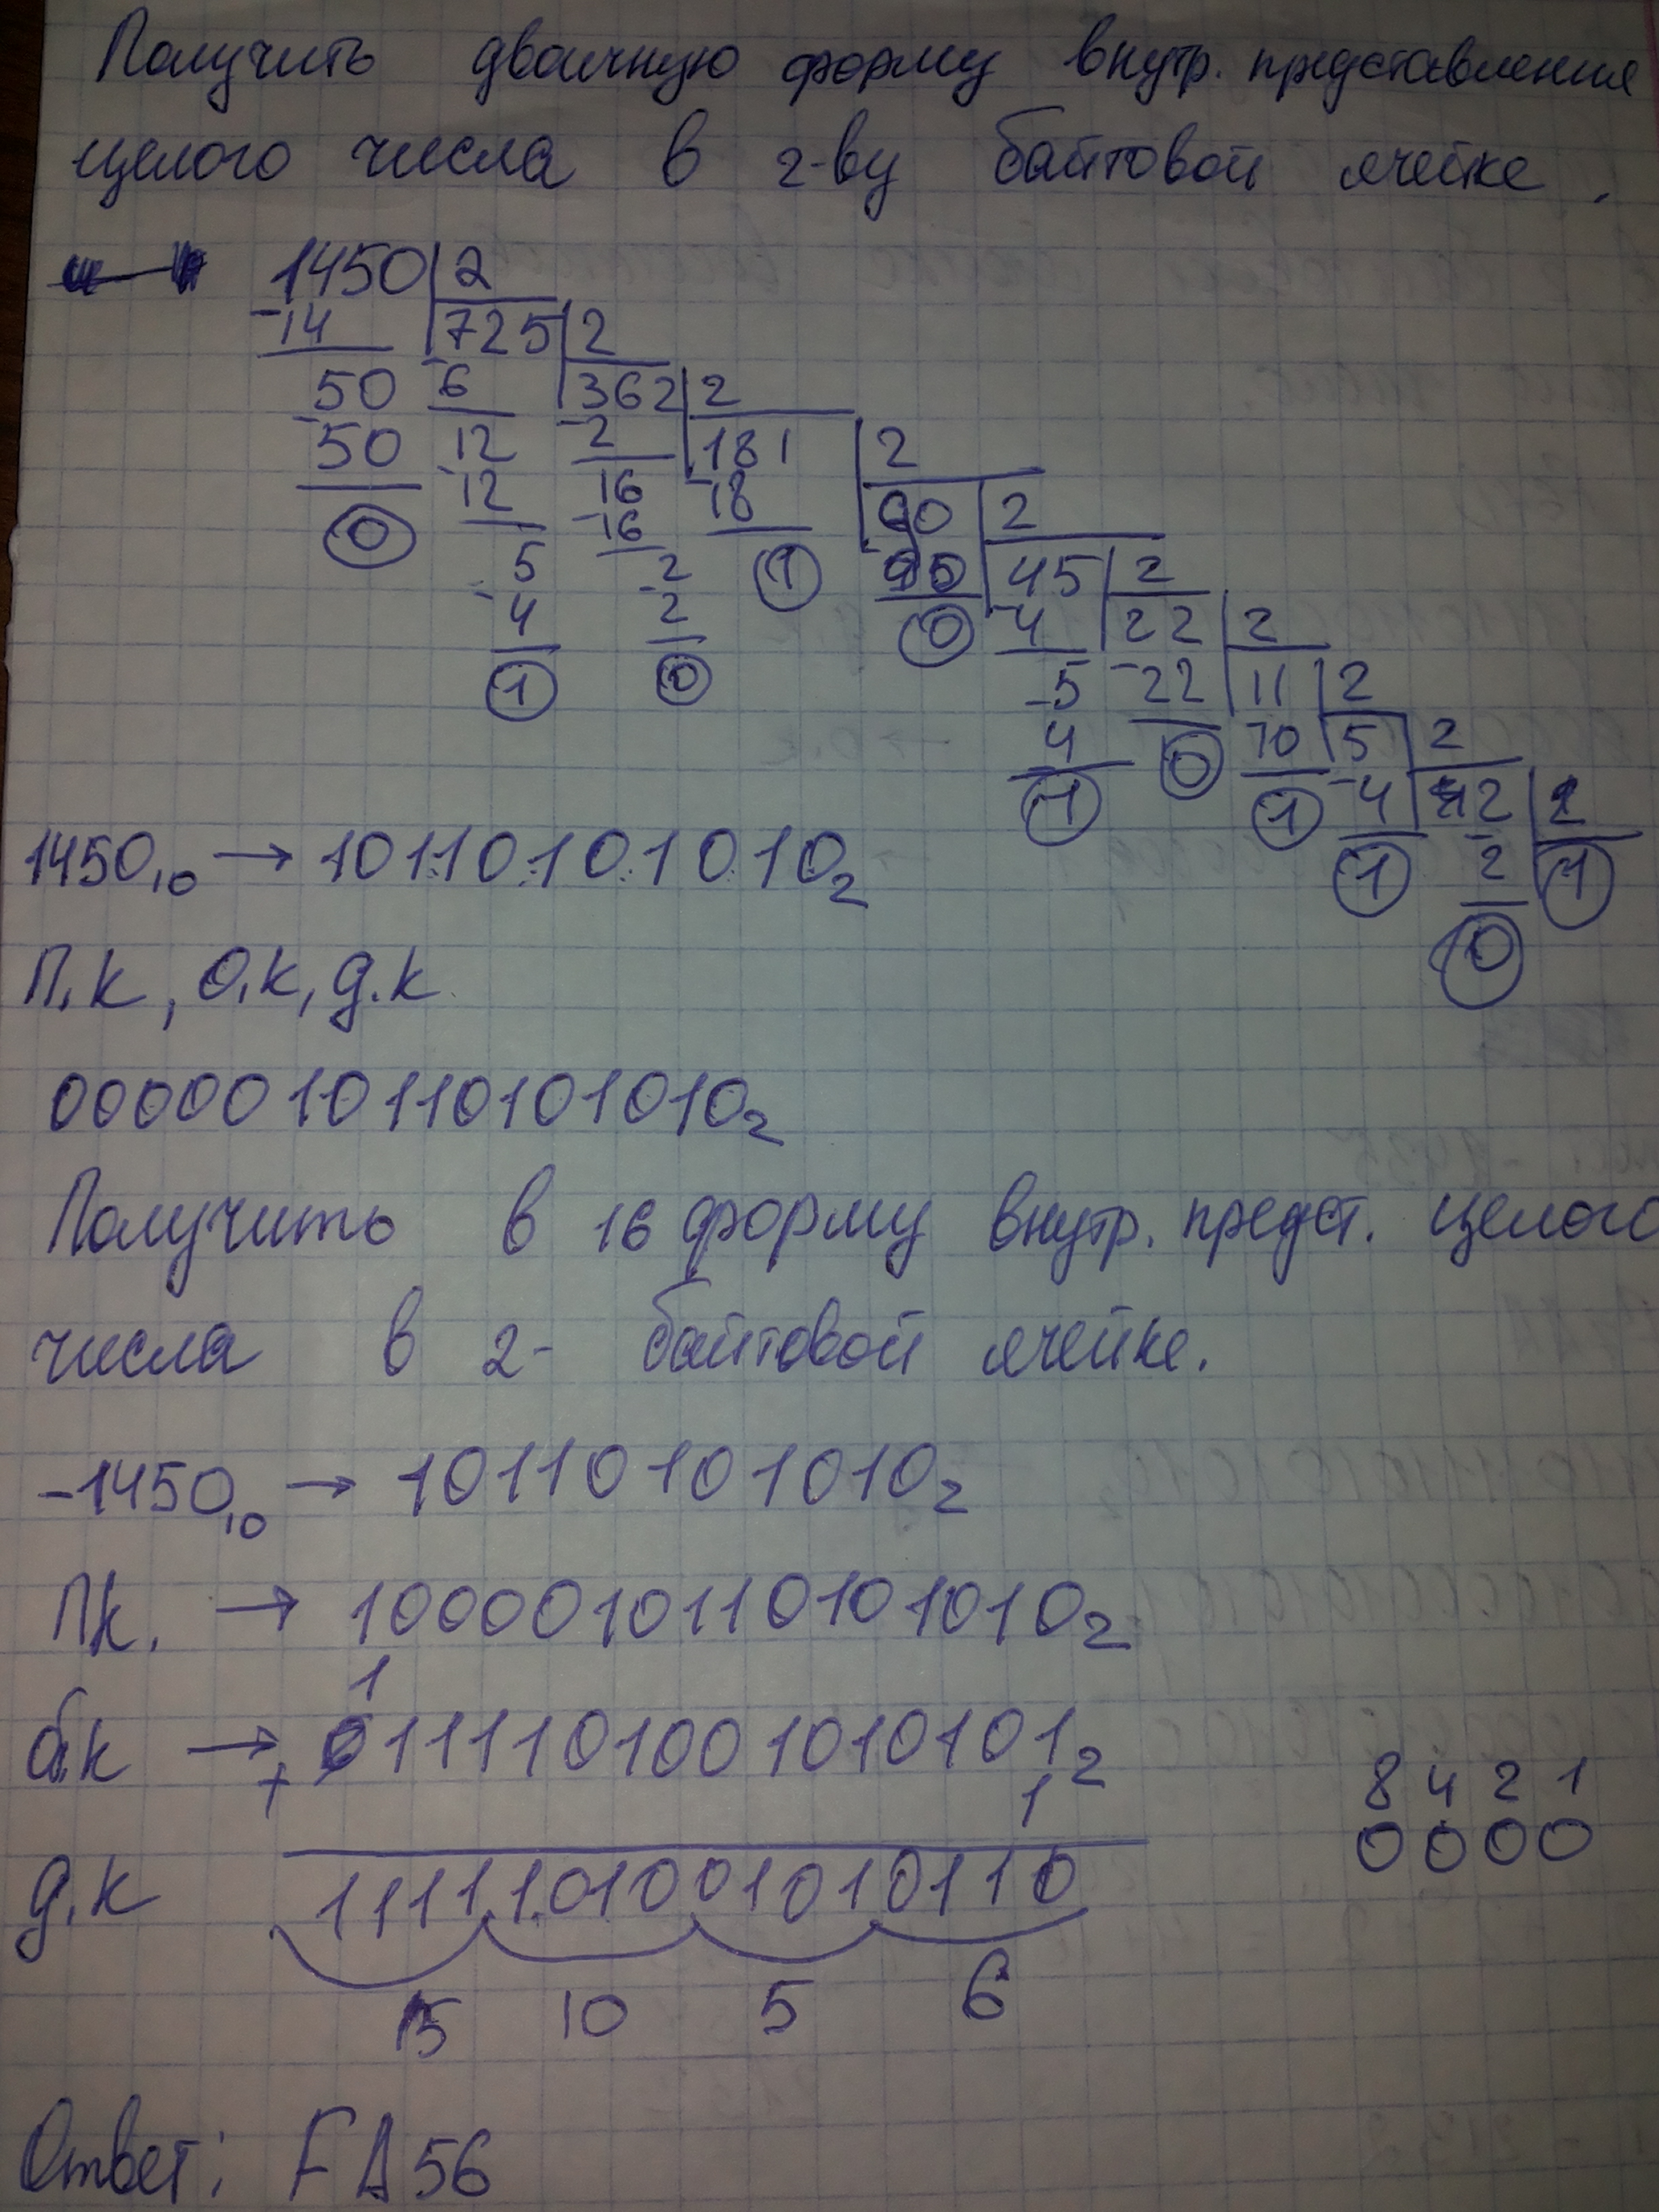 Получить двоичную форму внутр. представления
целого числа в 2-ву байтовой ячейке.
1450 2
-14 725 2
50 6 362 2
50 12 2 181 2
0 12 16 18 90 2
5 16 1 90 45 2
4 2 0 4 22 2
1 2 5 22 11 2
0 4 0 10 5 2
1 1 4 2 2
1 2 1
0
1450₁₀ → 10110101010₂
П.к, О.к, д.к
0000010110101010₂
Получить в 16 форму внутр. предст. целого
числа в 2- байтовой ячейке.
-1450₁₀ → 10110101010₂
Пк. → 1000010110101010₂
1
о.к → 0111101001010101₂
+ 1
8 4 2 1
0000
д.к 1111101001010110
15 10 5 6
Ответ: FA56